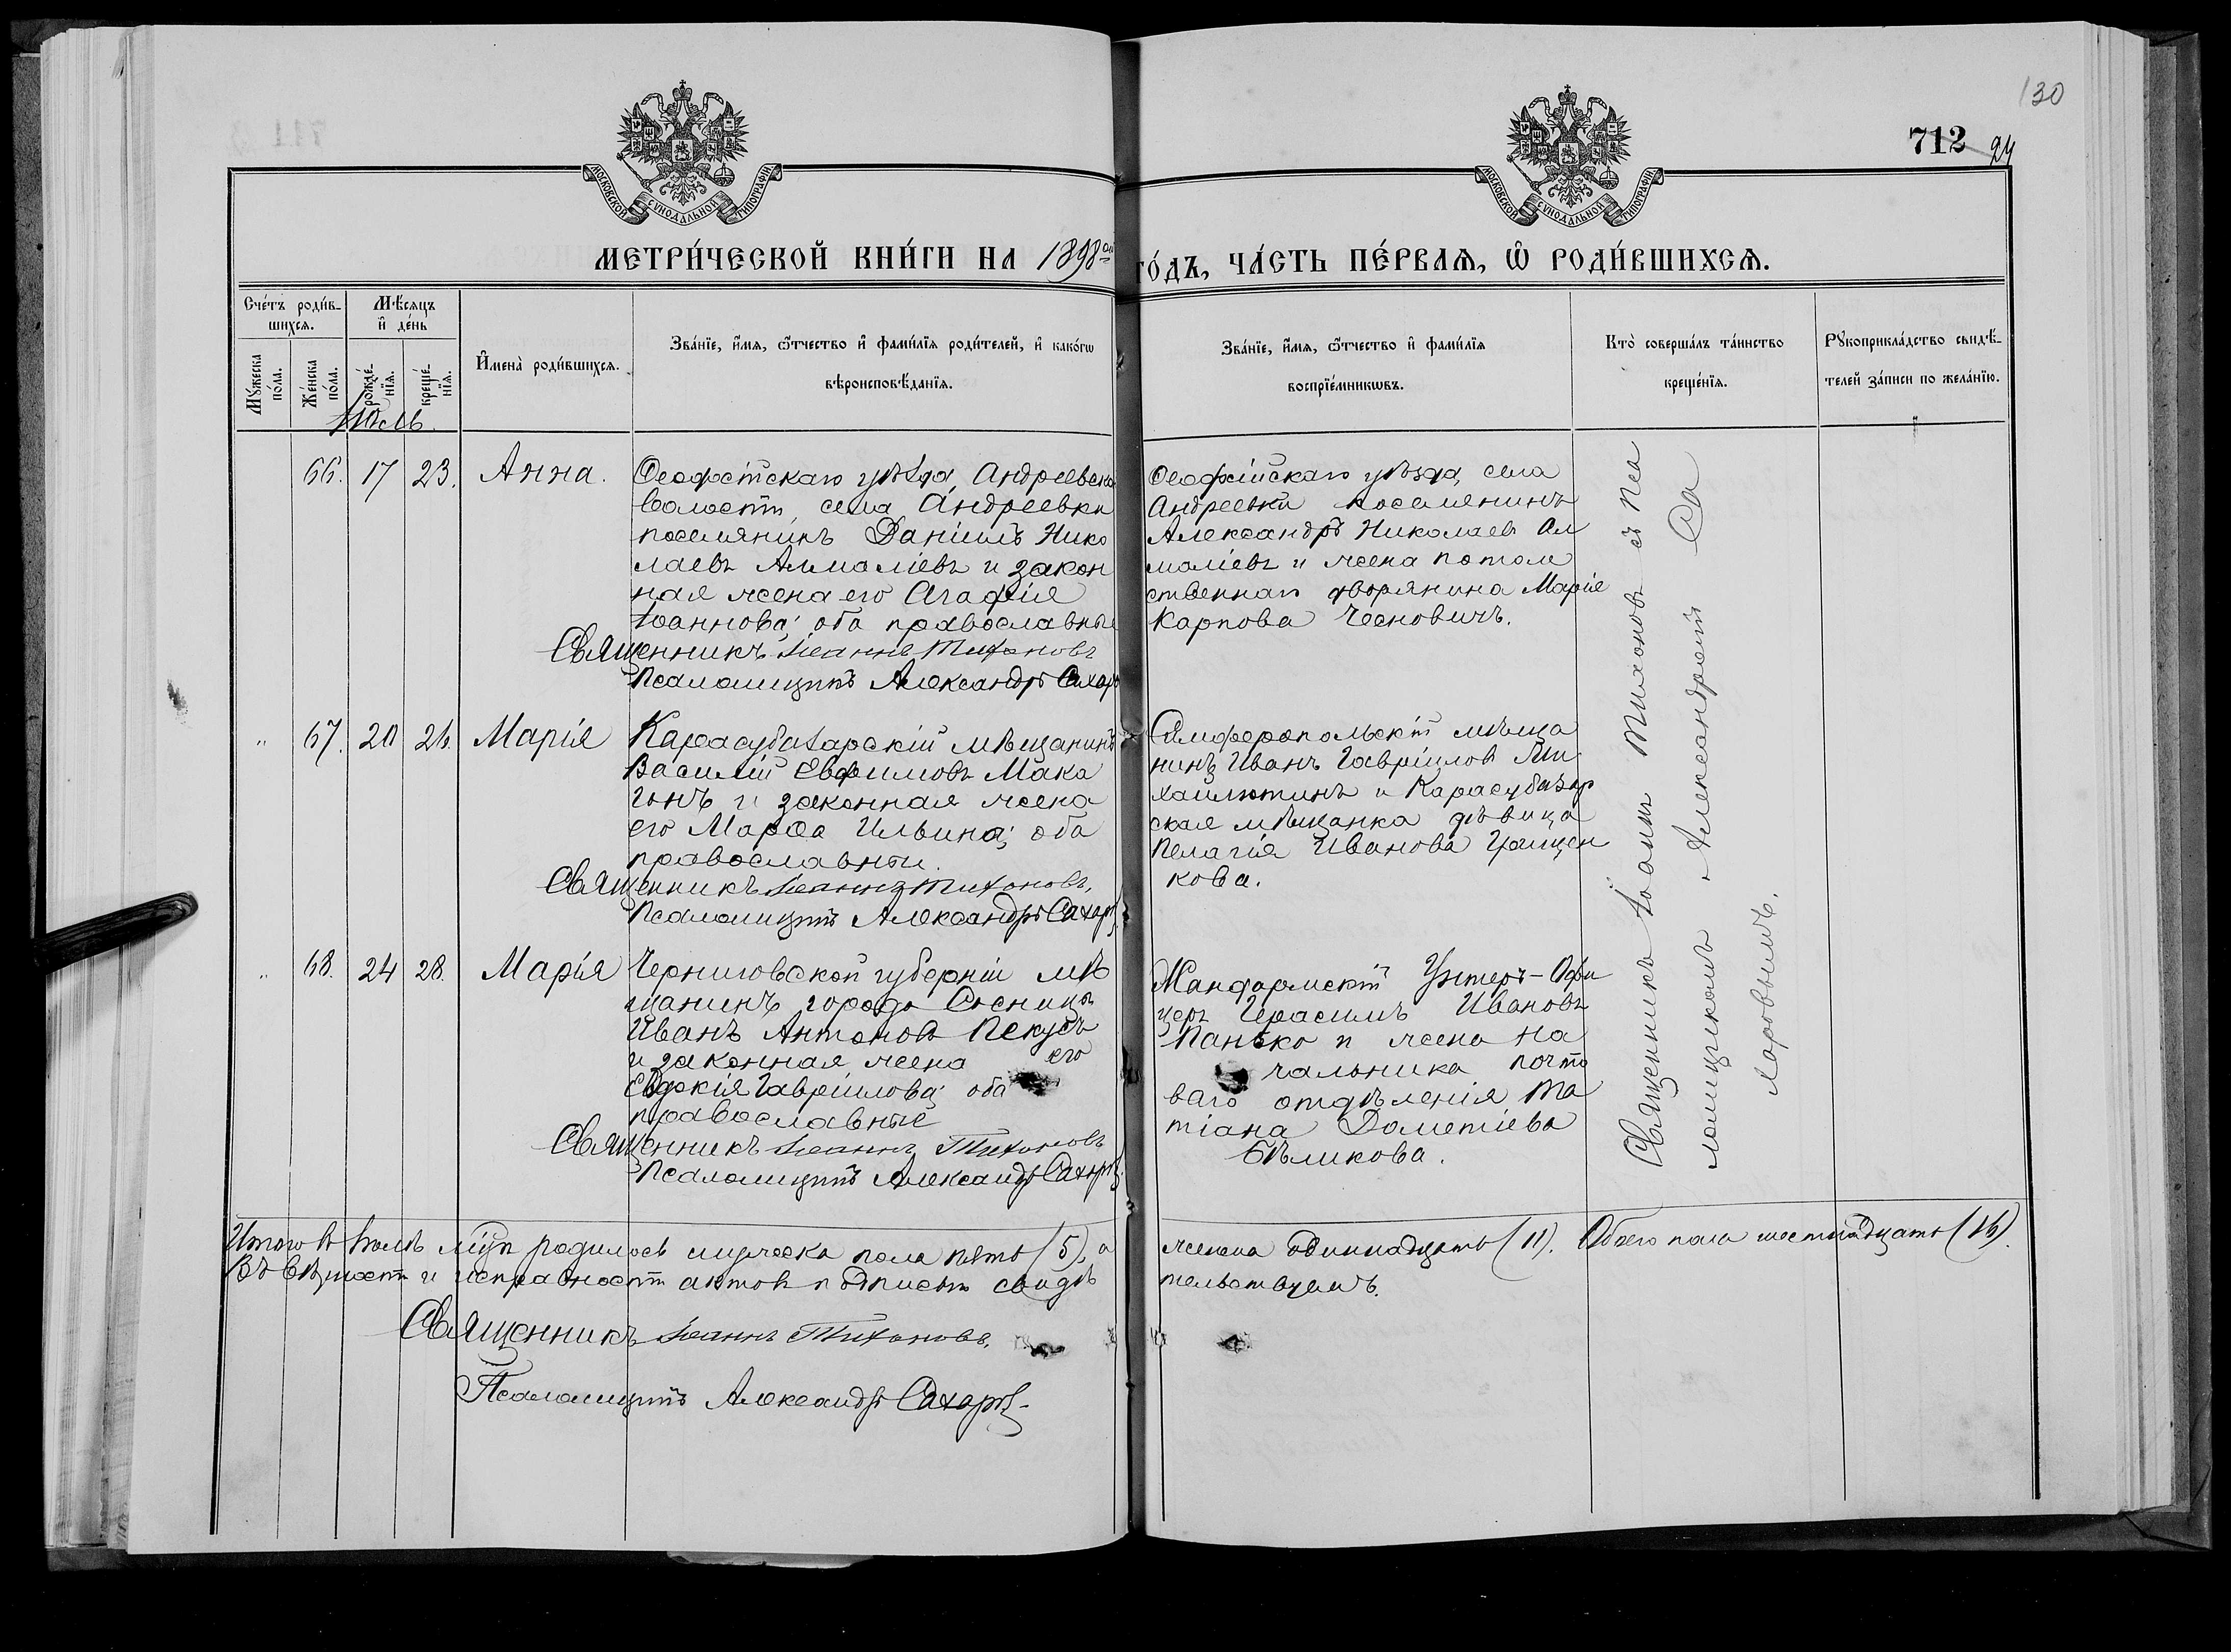 130
712 24
МОСКОВСКОЙ СѴНОДАЛЬНОЙ ТИПОГРАФІИ
МОСКОВСКОЙ СѴНОДАЛЬНОЙ ТИПОГРАФІИ
МЕТРИ́ЧЕСКОЙ КНИ́ГИ НА 1898 ой
ГО́ДЪ, ЧА́СТЬ ПЕ́РВАЯ, Ѡ РОДИ́ВШИХСЯ.
Сче́тъ роди́в-
шихся.
Мѣ́сяцъ
и҆ де́нь
Мꙋ́жеска по́ла.
Же́нска по́ла.
рожде́нїя.
креще́нїя.
И҆мена̀ роди́вшихся.
Зва́нїе, и҆́мя, ѻ҆́тчество и҆ фами́лїя роди́телей, и҆ како́гѡ
вѣроисповѣ́данїя.
Зва́нїе, и҆́мя, ѻ҆́тчество и҆ фами́лїя
воспрїе́мникѡвъ.
Кто̀ соверша́лъ та́инство
креще́нїя.
Рꙋкоприкла́дство свидѣ́-
телей за́писи по жела́нїю.
Іюль
66. 17 23. Анна.
Ѳеодосійскаго уѣзда, Андреевской
волости, села Андреевки
поселянинъ Даніилъ Нико
лаевъ Алмаліевъ и закон
ная жена его Агафія
Іоаннова; оба православные
Священникъ Іоаннъ Тихоновъ
Псаломщикъ Александръ Сахаровъ
Ѳеодосійскаго уѣзда, села
Андреевки поселянинъ
Александръ Николаевъ Ал
маліевъ и жена потом
ственнаго дворянина Марія
Карпова Чесновичъ.
" 67. 20 26. Марія
Карасубазарскій мѣщанинъ
Василій Евфимовъ Мака
гонъ и законная жена
его Марѳа Ильина; оба
православные.
Священникъ Іоаннъ Тихоновъ,
Псаломщикъ Александръ Сахаровъ
Симферопольскій мѣща
нинъ Иванъ Гавріиловъ Ми
хайлютинъ и Карасубазар
ская мѣщанка дѣвица
Пелагія Иванова Грищен
кова.
" 68. 24 28. Марія
Черниговской губерніи мѣ
щанинъ города Сосницы
Иванъ Антоновъ Пекусъ
и законная жена его
Евдокія Гавріилова; оба
православные
Священникъ Іоаннъ Тихоновъ
Псаломщикъ Александръ Сахаровъ
Жандармскій Унтеръ-Офи
церъ Герасимъ Ивановъ
Панько и жена на
чальника почто
ваго отдѣленія Та
тіана Дометіева
Бѣликова.
Священникъ Іоаннъ Тихоновъ съ Пса
ломщикомъ Александромъ Са
харовымъ.
Итого въ Іюлѣ м‑цѣ родилось мужеска пола пять (5), а
женска одиннадцать (11). Обоего пола шестнадцать (16).
Въ вѣрности и исправности актовъ подписью свидѣ
тельствуемъ.
Священникъ Іоаннъ Тихоновъ.
Псаломщикъ Александръ Сахаровъ